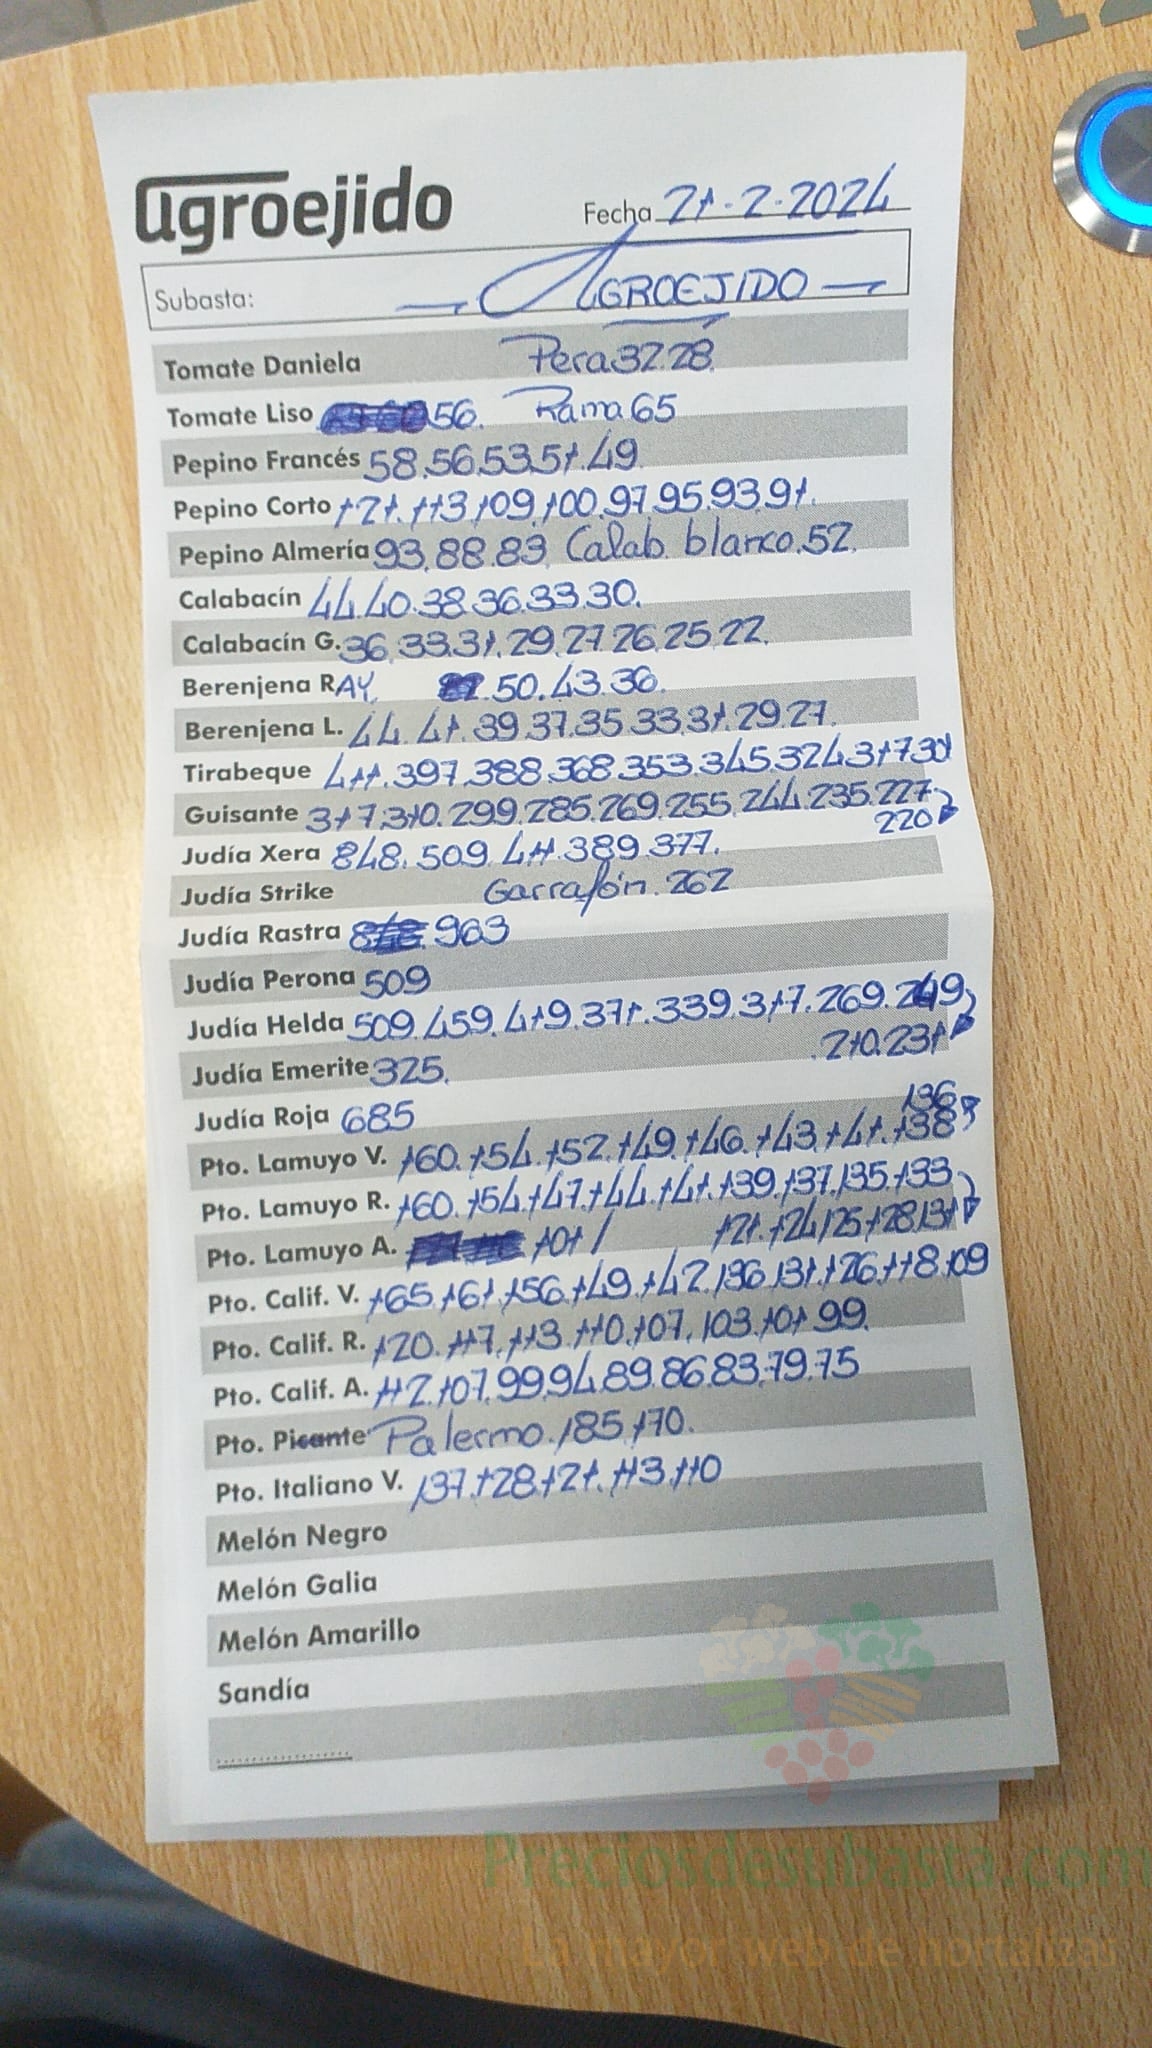 agroejido
Fecha 21-2-2024
Subasta: AGROEJIDO
Tomate Daniela Pera 32.28.
Tomate Liso 56. Rama 65
Pepino Francés 58.56.53.51.49
Pepino Corto 121.113.109.100.97.95.93.91.
Pepino Almería 93.88.83 Calab. blanco.52.
Calabacín 44.40.38.36.33.30.
Calabacín G. 36.33.31.29.27.26.25.22.
Berenjena RAY. 50.43.36.
Berenjena L. 44.41.39.37.35.33.31.29.27.
Tirabeque 411.397.388.368.353.345.324.317.301
Guisante 317.310.299.285.269.255.244.235.227
220
Judía Xera 848.509.411.389.377.
Judía Strike Garrafón.262
Judía Rastra 963
Judía Perona 509
Judía Helda 509.459.419.371.339.317.269.249
.210.231
Judía Emerite 325.
Judía Roja 685
136
Pto. Lamuyo V. 160.154.152.149.146.143.141.138
Pto. Lamuyo R. 160.154.147.144.141.139.137.135.133
121.124.125.128.131
Pto. Lamuyo A. 101/
Pto. Calif. V. 165.161.156.149.142.136.131.126.118.109
Pto. Calif. R. 120.117.113.110.107.103.101.99.
Pto. Calif. A. 112.107.99.94.89.86.83.79.75
Pto. Picante Palermo.185.170.
Pto. Italiano V. 137.128.121.113.110
Melón Negro
Melón Galia
Melón Amarillo
Sandía
Preciosdesubasta.com
La mayor web de hortalizas